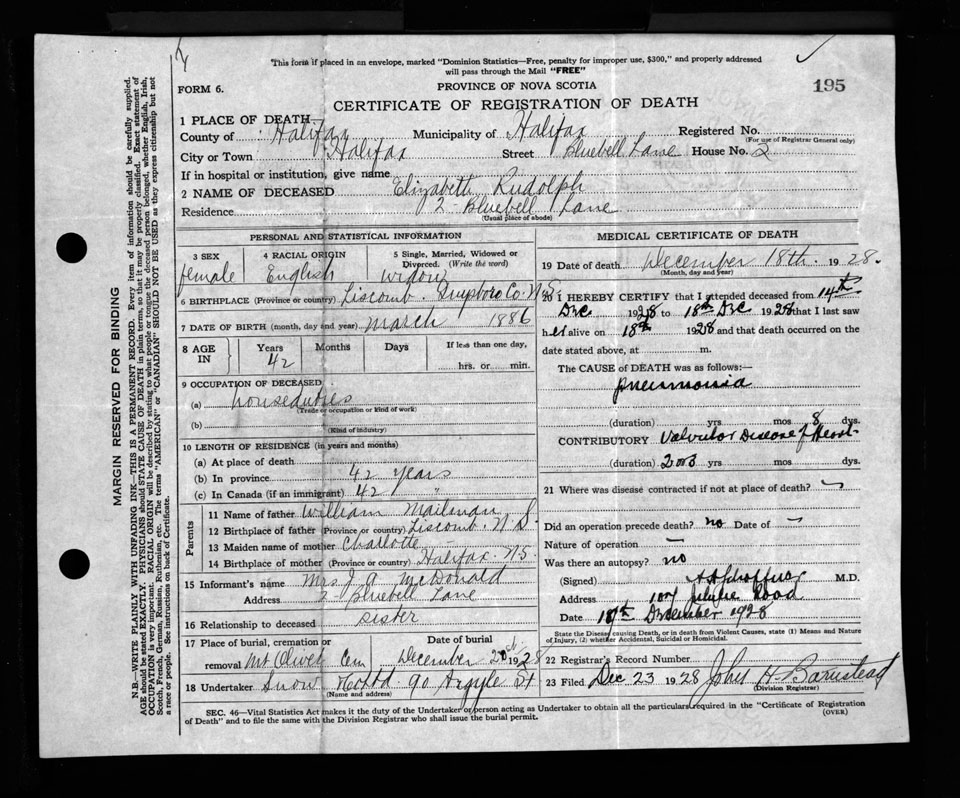 This form if placed in an envelope, marked "Dominion Statistics—Free, penalty for improper use, $300," and properly addressed
will pass through the Mail "FREE"
195
FORM 6.
PROVINCE OF NOVA SCOTIA
CERTIFICATE OF REGISTRATION OF DEATH
1 PLACE OF DEATH—
County of Halifax Municipality of Halifax Registered No.
(For use of Registrar General only)
City or Town Halifax Street Bluebell Lane House No. 2
If in hospital or institution, give name
2 NAME OF DECEASED Elizabeth Rudolph
Residence 2 Bluebell Lane
(Usual place of abode)
PERSONAL AND STATISTICAL INFORMATION
3 SEX 4 RACIAL ORIGIN 5 Single, Married, Widowed or Divorced. (Write the word)
female English Widow
6 BIRTHPLACE (Province or country) Liscomb. Co. N.S.
7 DATE OF BIRTH (month, day and year) March 1886
8 AGE IN Years Months Days If less than one day,
42 hrs. or min.
9 OCCUPATION OF DECEASED
(a) houseduties
(Trade or occupation or kind of work)
(b)
(Kind of industry)
10 LENGTH OF RESIDENCE (in years and months)
(a) At place of death
(b) In province 42 years
(c) In Canada (if an immigrant) 42 "
Parents
11 Name of father William Mailman
12 Birthplace of father (Province or country) Liscomb. N.S.
13 Maiden name of mother Charlotte —
14 Birthplace of mother (Province or country) Halifax. N.S.
15 Informant's name Mrs. J. A. McDonald
Address 2 Bluebell Lane
16 Relationship to deceased sister
17 Place of burial, cremation or removal Date of burial
Mt Olivet Cem December 20th 1928
18 Undertaker Snow 90 Argyle St
(Name and address)
MEDICAL CERTIFICATE OF DEATH
19 Date of death December 18th. 1928.
(Month, day and year)
20 I HEREBY CERTIFY that I attended deceased from 14th
Dec 1928 to 18th Dec 1928 that I last saw
her alive on 18th 1928 and that death occurred on
date stated above, at m.
The CAUSE OF DEATH was as follows:—
pneumonia
(duration) yrs mos 8 dys.
CONTRIBUTORY Valvular Disease of Heart
(duration) yrs mos dys.
21 Where was disease contracted if not at place of death? —
Did an operation precede death? no Date of —
Nature of operation —
Was there an autopsy? no
(Signed) M.D.
Address Road
Date December 1928
State the Disease causing Death, or in death from Violent Causes, state (1) Means and Nature
of Injury, (2) whether Accidental, Suicidal or Homicidal.
22 Registrar's Record Number
23 Filed Dec 23 1928 John H Barnstead
(Division Registrar)
SEC. 46—Vital Statistics Act makes it the duty of the Undertaker or person acting as Undertaker to obtain all the particulars required in the "Certificate of Registration
of Death" and to file the same with the Division Registrar who shall issue the burial permit.
(OVER)
MARGIN RESERVED FOR BINDING
N.B.—WRITE PLAINLY WITH UNFADING INK—THIS IS A PERMANENT RECORD. Every item of information should be carefully supplied.
AGE should be stated EXACTLY. PHYSICIANS should STATE CAUSE OF DEATH in plain terms, so that it may be properly classified. Exact statement of
OCCUPATION is very important. RACIAL ORIGIN will be described by stating to what people or tongue the deceased person belonged, whether English, Irish,
Scotch, French, German, Russian, Ruthenian, etc. The terms "AMERICAN" or "CANADIAN" SHOULD NOT BE USED as they express citizenship but not
a race or people. See instructions on back of Certificate.